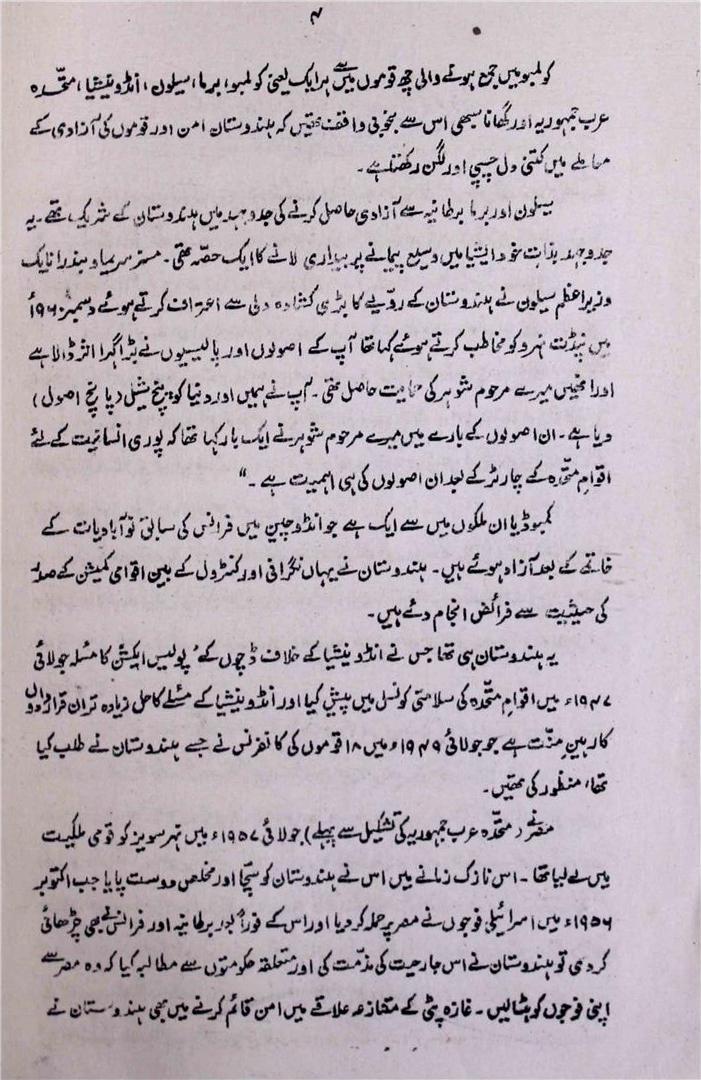 ۴
کولمبو میں جمع ہونے والی چھ قوموں میں سے ہر ایک یعنی کولمبو، برما، سیلون، انڈونیشیا، متحدہ
عرب جمہوریہ اور گھانا سبھی اس سے بخوبی واقف تھیں کہ ہندوستان امن اور قوموں کی آزادی کے
معاملے میں کتنی دل چسپی اور لگن رکھتا ہے۔
سیلون اور برما برطانیہ سے آزادی حاصل کرنے کی جدوجہد میں ہندوستان کے شریک تھے۔ یہ
جدوجہد بذات خود ایشیا میں وسیع پیمانے پر بیداری لانے کا ایک حصّہ تھی۔ مسز سریماو بندرانائک
وزیر اعظم سیلون نے ہندوستان کے رویّے کا بڑی کشادہ دلی سے اعتراف کرتے ہوئے دسمبر ۱۹۶۰ء
میں پنڈت نہرو کو مخاطب کرتے ہوئے کہا تھا آپ کے اصولوں اور پالیسیوں نے بڑا گہرا اثر ڈالا ہے
اور انھیں میرے مرحوم شوہر کی حمایت حاصل تھی۔ آپ نے ہمیں اور دنیا کو پنچ شیل (پانچ اصول)
دیا ہے۔ ان اصولوں کے بارے میں میرے مرحوم شوہر نے ایک بار کہا تھا کہ پوری انسانیت کے لئے
اقوام متحّدہ کے چارٹر کے بعد ان اصولوں کی ہی اہمیت ہے۔"
کمبوڈیا ان ملکوں میں سے ایک ہے جو انڈوچین میں فرانس کی سابق نوآبادیات کے
خاتمے کے بعد آزاد ہوئے ہیں۔ ہندوستان نے یہاں نگرانی اور کنٹرول کے بین اقوامی کمیشن کے صدر
کی حیثیت سے فرائض انجام دئے ہیں۔
یہ ہندوستان ہی تھا جس نے انڈونیشیا کے خلاف ڈچوں کے' پولیس ایکشن کا مسئلہ جولائی
۱۹۴۷ء میں اقوام متحّدہ کی سلامتی کونسل میں پیش کیا اور انڈونیشیا کے مسئلے کا حل زیادہ تر ان قراردادوں
کا رہینِ منّت ہے جو جولائی ۱۹۴۹ء میں ۱۸ قوموں کی کانفرنس نے جسے ہندوستان نے طلب کیا
تھا، منظور کی تھیں۔
مصر نے (متحّدہ عرب جمہوریہ کی تشکیل سے پہلے) جولائی ۱۹۵۷ء میں نہر سویز کو قومی ملکیت
میں لے لیا تھا۔ اس نازک زمانے میں اس نے ہندوستان کو سچّا اور مخلص دوست پایا جب اکتوبر
۱۹۵۶ء میں اسرائیلی فوجوں نے مصر پر حملہ کر دیا اور اس کے فوراً بعد برطانیہ اور فرانس نے بھی چڑھائی
کر دی تو ہندوستان نے اس جارحیت کی مذمّت کی اور متعلقہ حکومتوں سے مطالبہ کیا کہ وہ مصر سے
اپنی فوجوں کو ہٹالیں۔ غازہ پٹی کے متنازعہ علاقے میں امن قائم کرنے میں بھی ہندوستان نے